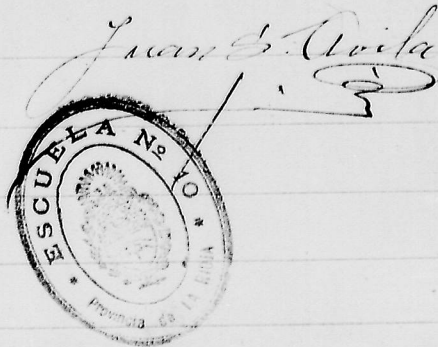 Juan S. Avila
ESCUELA Nº 10
Provincia de LA RIOJA